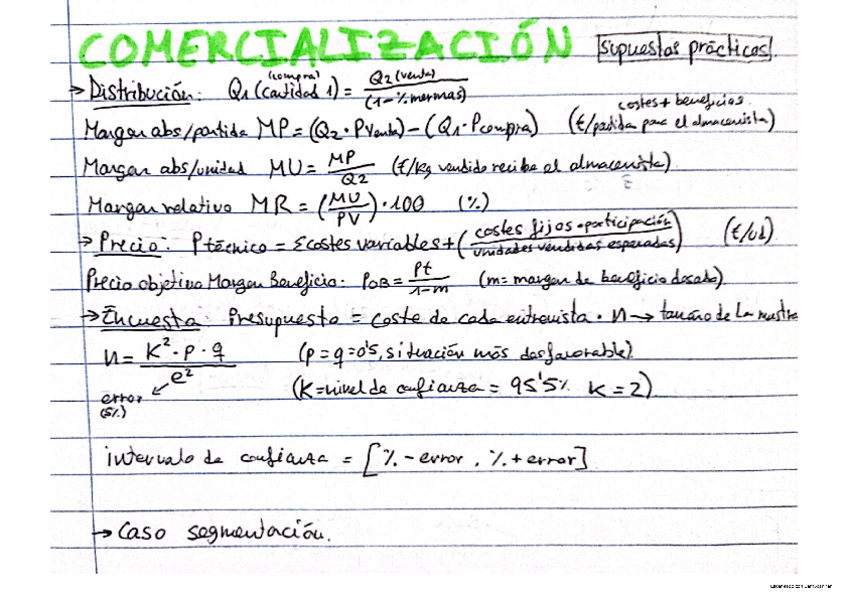 COMERCIALIZACIÓN supuestos prácticos
→ Distribución: Q1 (compra) (cantidad 1) = Q2 (venta) / (1-%mermas)
costes + beneficios
Margen abs/partida MP = (Q2 · Pventa) - (Q1 · Pcompra) (€/partida para el almacenista)
Margen abs/unidad MU = MP / Q2 (€/kg vendido recibe el almacenista)
Margen relativo MR = (MU / PV) · 100 (%)
→ Precio: Ptécnico = Σcostes variables + (costes fijos · participación / unidades vendidas esperadas) (€/ud)
Precio objetivo Margen Beneficio: POB = Pt / 1-m (m = margen de beneficio deseado)
→ Encuesta: Presupuesto = coste de cada entrevista · n → tamaño de la mustra
n = K² · p · q / e² (p = q = 0'5, situación más desfavorable)
error (5%) (K = nivel de confianza = 95'5% K = 2)
intervalo de confianza = [% - error, % + error]
→ Caso segmentación.